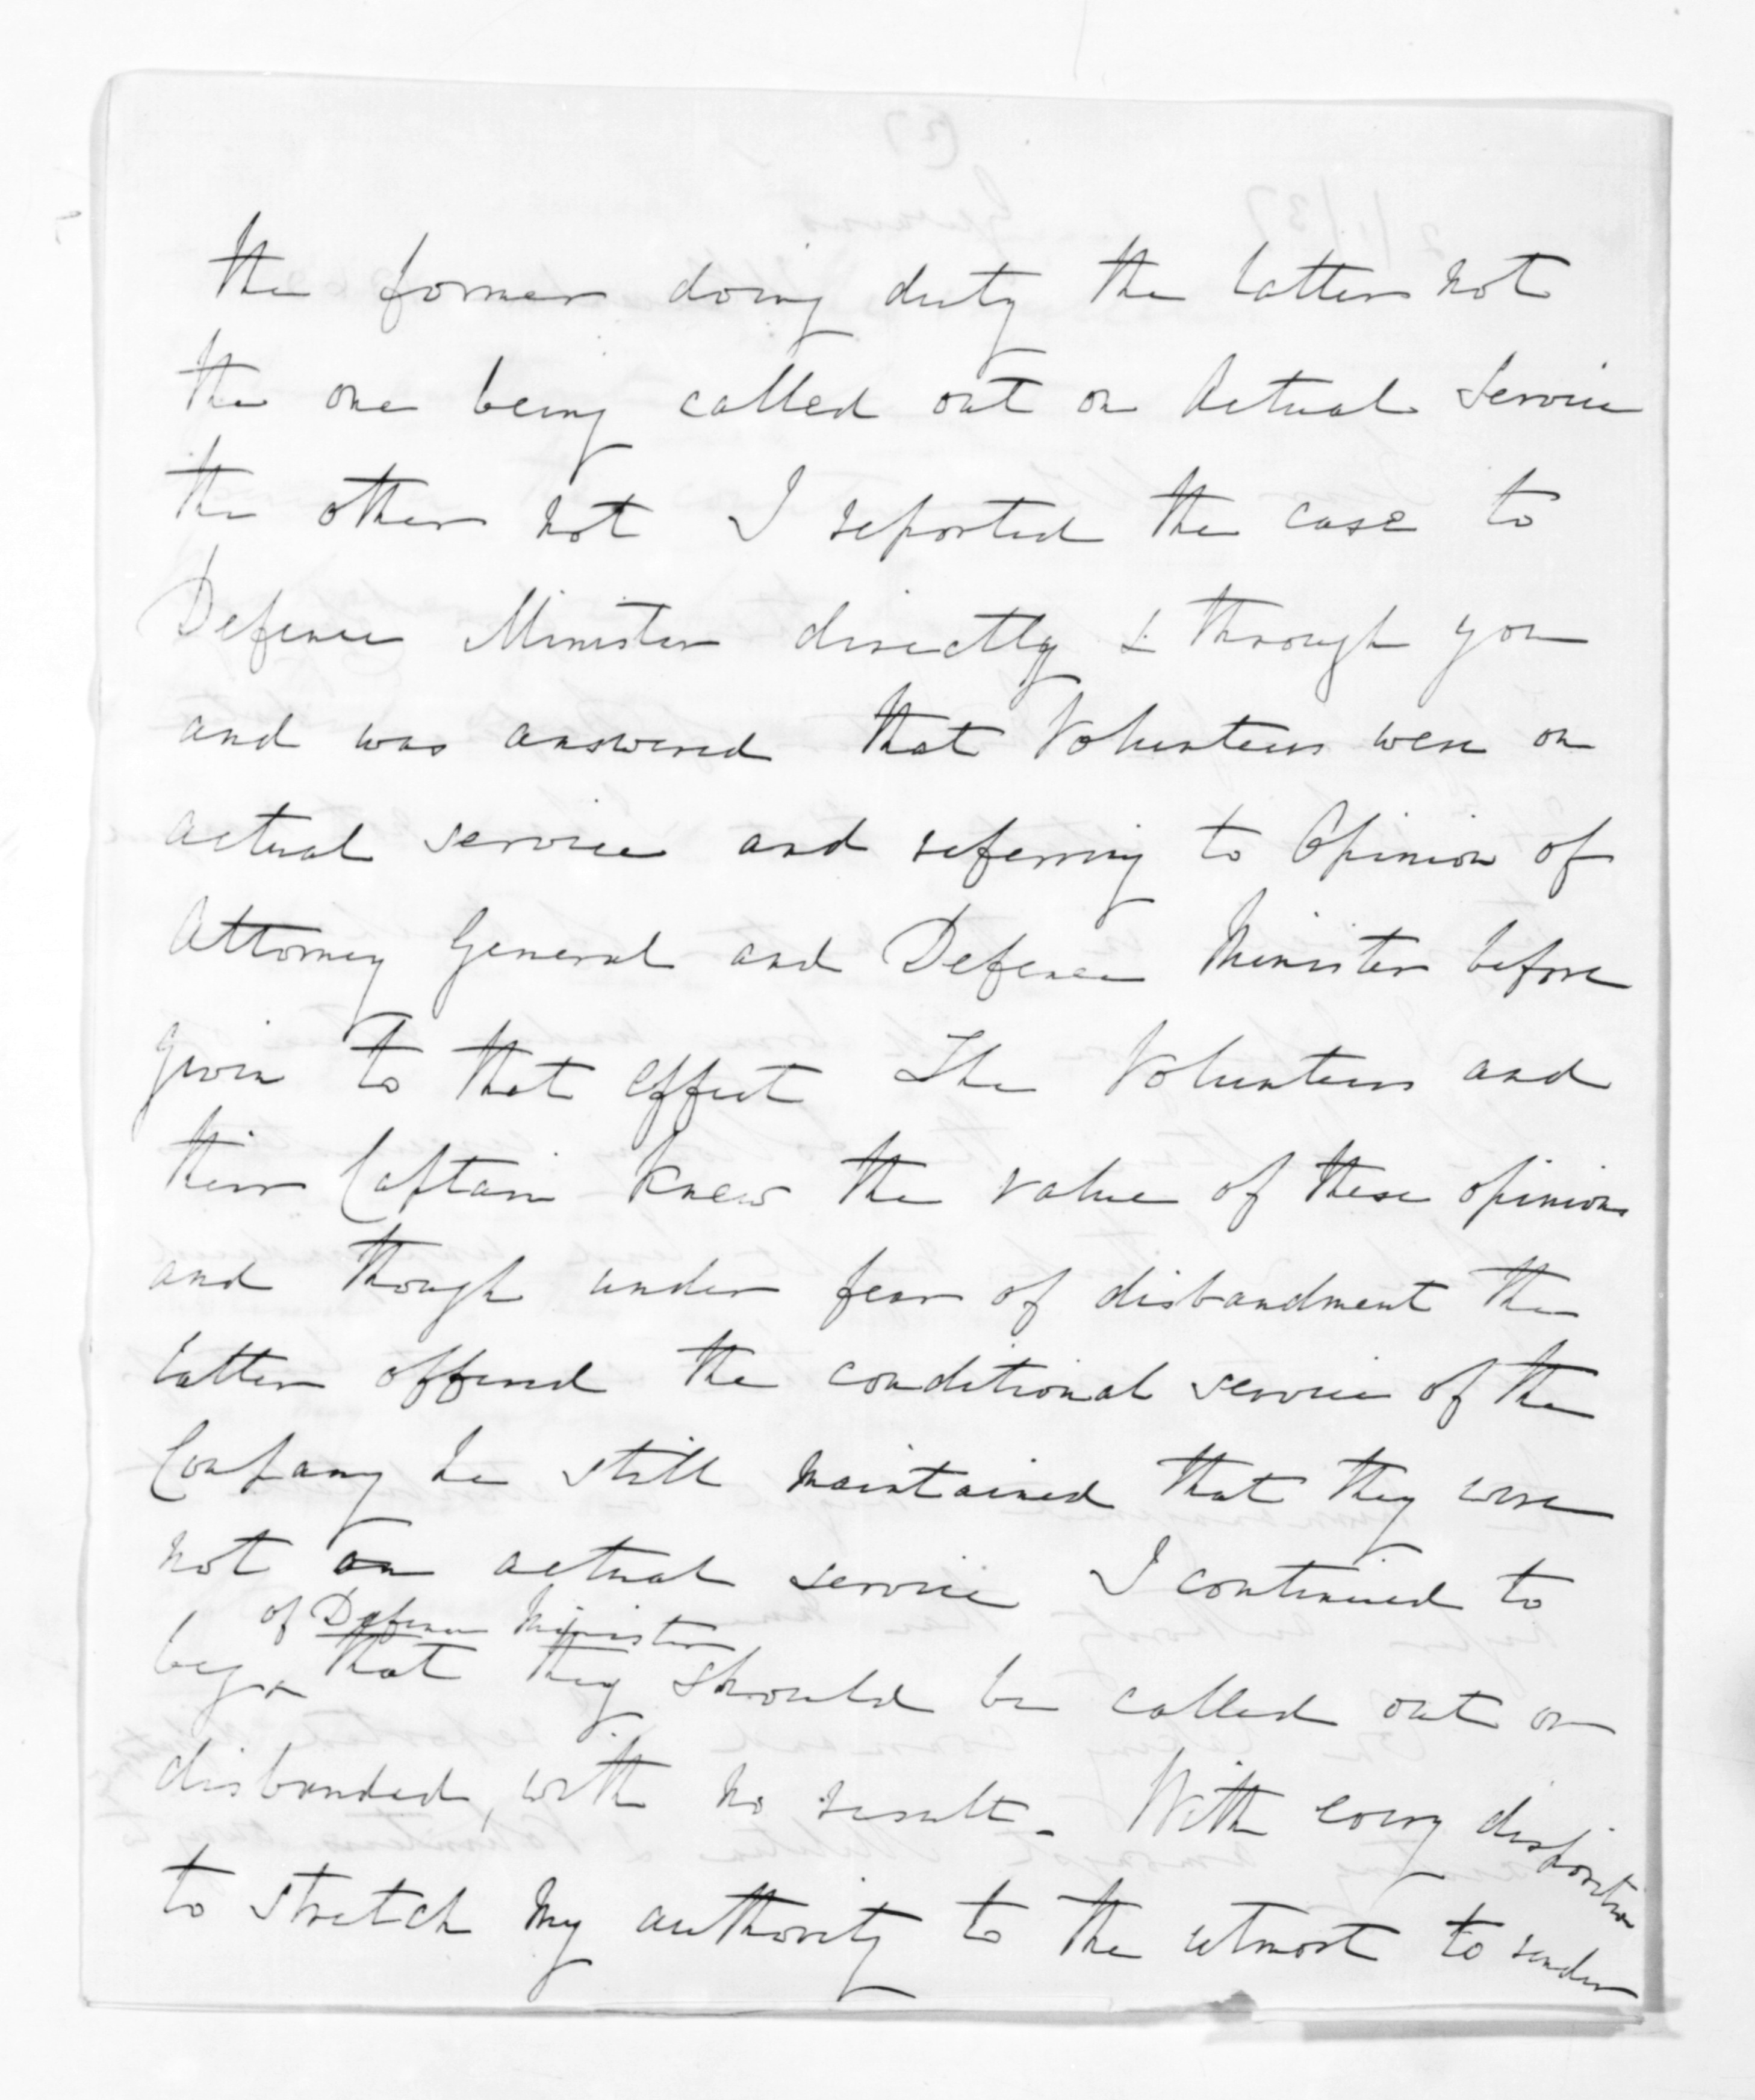 the former doing duty the latter not
the one being called out on Actual Service
the other not I reported the case to
Defence Minister directly & through you
and was answered that Volunteers were on
actual service and referring to Opinion of
Attorney General and Defence Minister before
given to that effect The Volunteers and
their Captain knew the value of these opinions
and though under fear of disbandment the
latter offered the conditional service of the
Company he still maintained that they were
not on actual service I continued to
of Defence Minister
beg x that they should be called out or
disbanded, with no result. With every disposition
to stretch my authority to the utmost to render